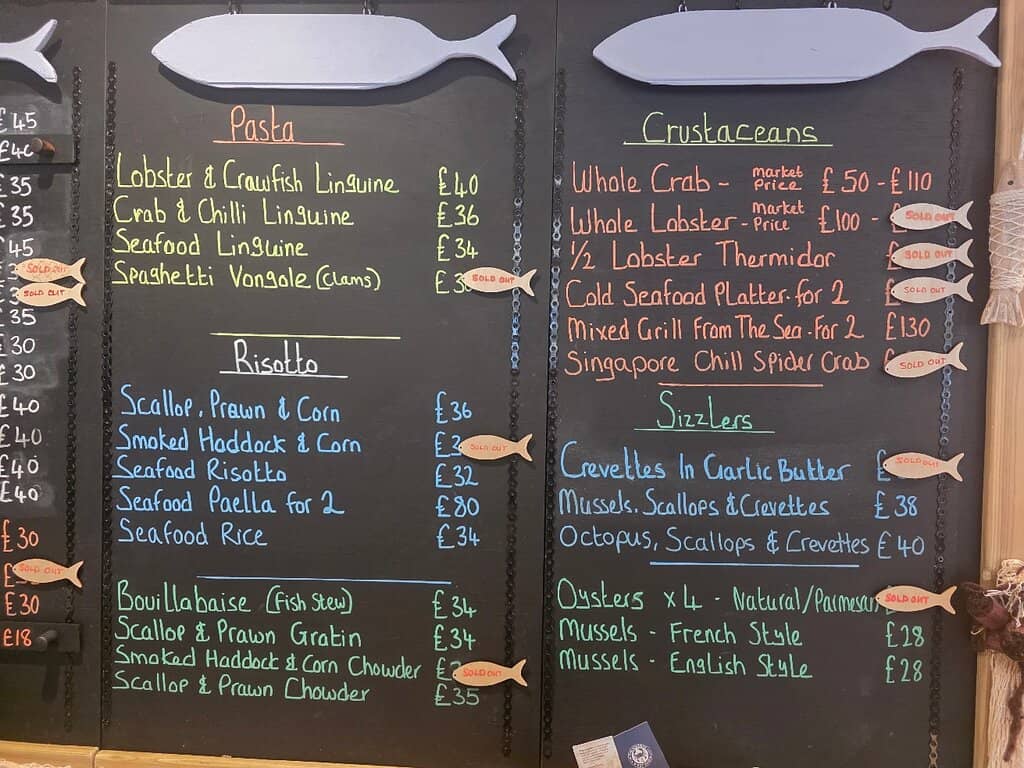 £45
£40
£35
£35
£45
SOLD OUT
SOLD OUT
£35
£30
£30
£40
£40
£40
£40
£30
SOLD OUT
£30
£18
Pasta
Lobster & Crawfish Linguine £40
Crab & Chilli Linguine £36
Seafood Linguine £34
Spaghetti Vongole (Clams) SOLD OUT
Risotto
Scallop, Prawn & Corn £36
Smoked Haddock & Corn SOLD OUT
Seafood Risotto £32
Seafood Paella for 2 £80
Seafood Rice £34
Bouillabaise (Fish Stew) £34
Scallop & Prawn Gratin £34
Smoked Haddock & Corn Chowder SOLD OUT
Scallop & Prawn Chowder £35
Crustaceans
Whole Crab - market Price £50 - £110
Whole Lobster - Market Price £100 - SOLD OUT
1/2 Lobster Thermidor £ SOLD OUT
Cold Seafood Platter. for 2 £ SOLD OUT
Mixed Grill From The Sea. For 2 £130
Singapore Chill Spider Crab £ SOLD OUT
Sizzlers
Crevettes In Garlic Butter £ SOLD OUT
Mussels, Scallops & Crevettes £38
Octopus, Scallops & Crevettes £40
Oysters x 4 - Natural/Parmesan SOLD OUT
Mussels - French Style £28
Mussels - English Style £28